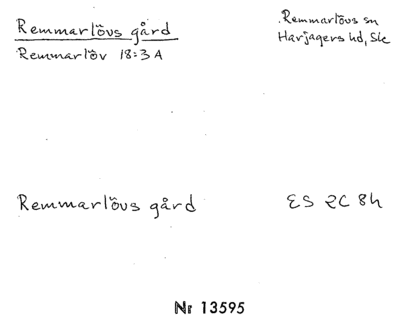 Remmarlövs gård
Remmarlöv 18:3 A
Remmarlövs sn
Harjagers hd, Ske
Remmarlövs gård
ES 2C 8h
Nr 13595